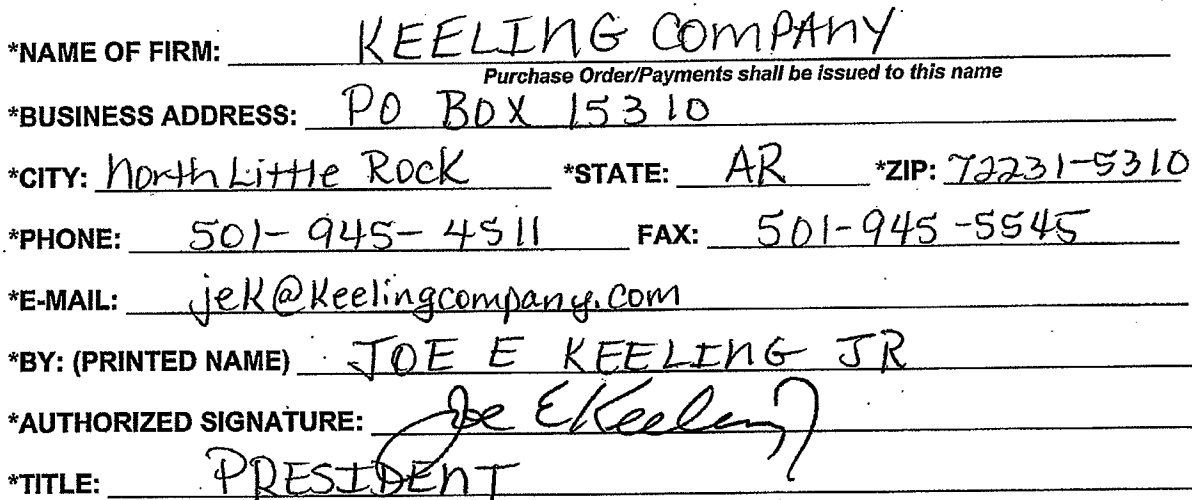 *NAME OF FIRM: KEELING COMPANY
Purchase Order/Payments shall be issued to this name
*BUSINESS ADDRESS: PO BOX 15310
*CITY: North Little Rock *STATE: AR *ZIP: 72231-5310
*PHONE: 501-945-4511 FAX: 501-945-5545
*E-MAIL: jek@keelingcompany.com
*BY: (PRINTED NAME) JOE E KEELING JR
*AUTHORIZED SIGNATURE: Joe E Keeling
*TITLE: PRESIDENT